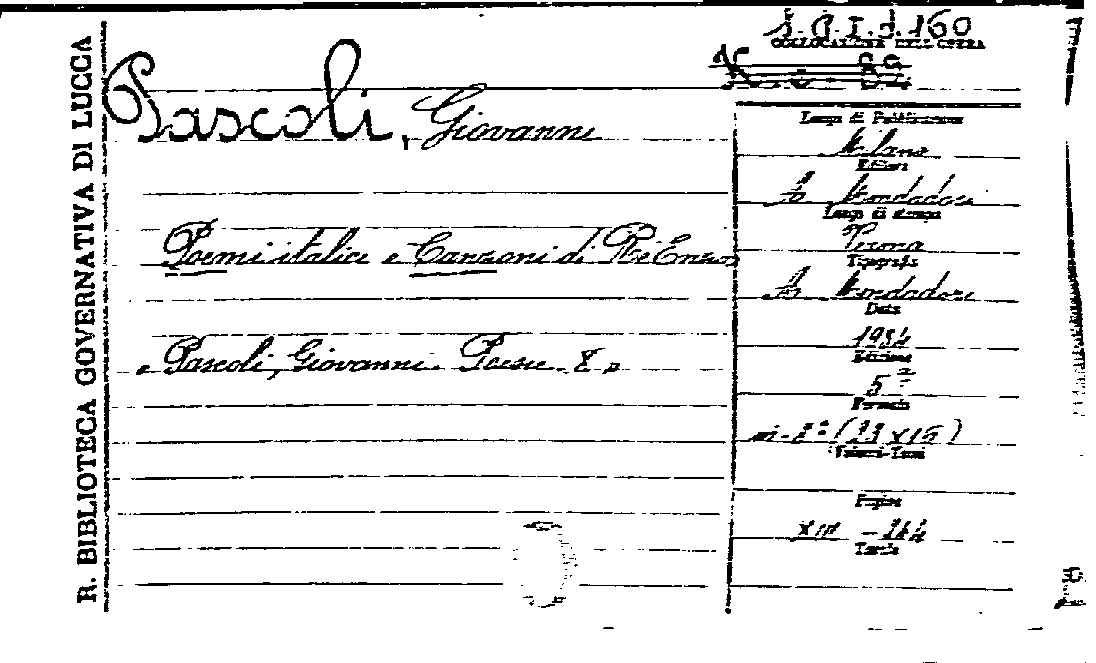 R. BIBLIOTECA GOVERNATIVA DI LUCCA
COLLOCAZIONE DELL'OPERA
Pascoli, Giovanni
Poemi italici e Canzoni di Re Enzo
« Pascoli, Giovanni - Poesie - 8 »
Luogo di Pubblicazione
Milano
Editore
A. Mondadori
Luogo di stampa
Verona
Tipografia
A. Mondadori
Data
1934
Edizione
5ª
Formato
in-8° (23 x 15)
Volumi-Tomi
Pagine
Tavole